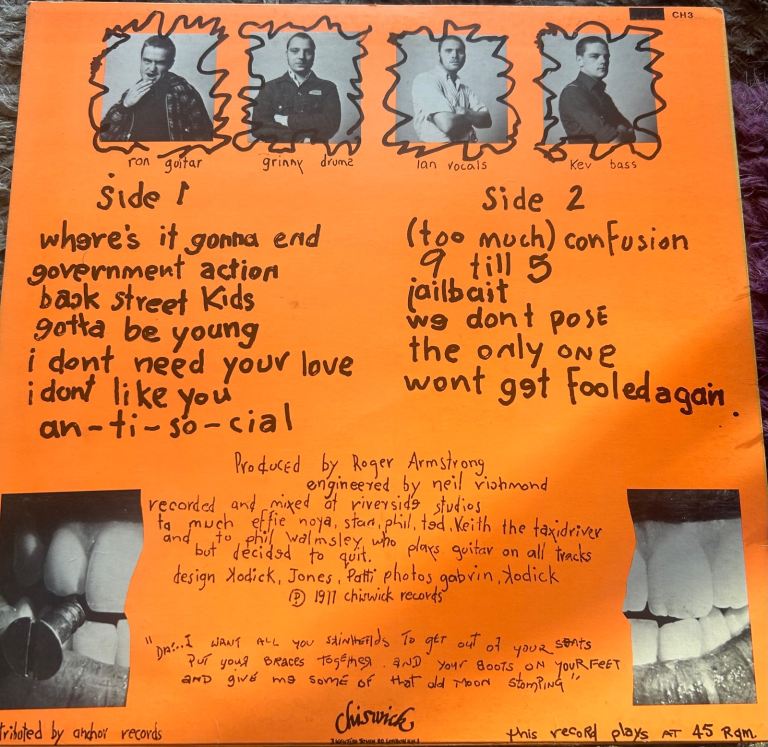 CH3
ron guitar
grinny drums
Ian vocals
Kev bass
Side 1
where's it gonna end
government action
back street Kids
gotta be young
i dont need your love
i dont like you
an-ti-so-cial
Side 2
(too much) confusion
9 till 5
jailbait
we dont pose
the only one
wont get fooled again.
Produced by Roger Armstrong
engineered by neil richmond
recorded and mixed at riverside studios
ta much effie noya, stan, phil, ted, Keith the taxidriver
and to phil walmsley who plays guitar on all tracks
but decided to quit.
design Kodick, Jones, Patti photos gabrin, Kodick
Ⓟ 1977 chiswick records
I WANT ALL you SKINHEADS To get out of your seats
Put your Braces Together AND Your Boots on your FEET
AND give me some of that old Moon Stomping"
tributed by anchor records
chiswick
this record plays AT 45 Rpm.